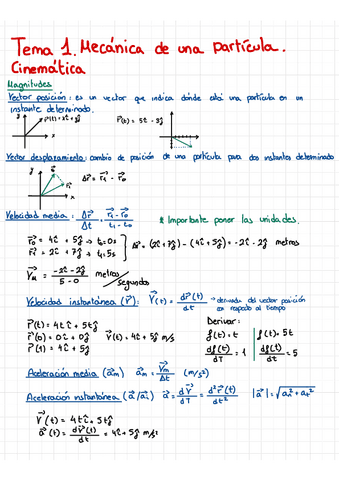 Tema 1. Mecánica de una partícula.
Cinemática
Magnitudes
Vector posición: es un vector que indica dónde está una partícula en un
instante determinado.
r⃗(t) = 2î + 2ĵ
r⃗(t) = 5î - 3ĵ
Vector desplazamiento: cambio de posición de una partícula para dos instantes determinado
Δr⃗ = r⃗₁ - r⃗₀
Velocidad media: Δr⃗/Δt = (r⃗₁ - r⃗₀)/(t₁ - t₀)
* Importante poner las unidades.
r⃗₀ = 4î + 5ĵ → t₀=0s
r⃗₁ = 2î + 7ĵ → t₁=5s
Δr⃗ = (2î + 7ĵ) - (4î + 5ĵ) = -2î - 2ĵ metros
V⃗m = (-2î - 2ĵ)/(5 - 0) metros/segundos
Velocidad instantánea (r⃗): V⃗(t) = dr⃗(t)/dt → derivada del vector posición
en respecto al tiempo
r⃗(t) = 4tî + 5tĵ
r⃗(0) = 0î + 0ĵ
r⃗(1) = 4î + 5ĵ
V⃗(t) = 4î + 5ĵ m/s
Derivar:
f(t) = t
f(t) = 5t
df(t)/dT = 1
df(t)/dt = 5
Aceleración media (a⃗m) a⃗m = V⃗m/Δt (m/s²)
Aceleración instantánea (a⃗/a⃗i) a⃗ = dV⃗/dT = d²r⃗(t)/dt² |a⃗| = √(ax² + ay²)
V⃗(t) = 4tî + 5tĵ
a⃗(t) = dV⃗(t)/dt = 4î + 5ĵ m/s²